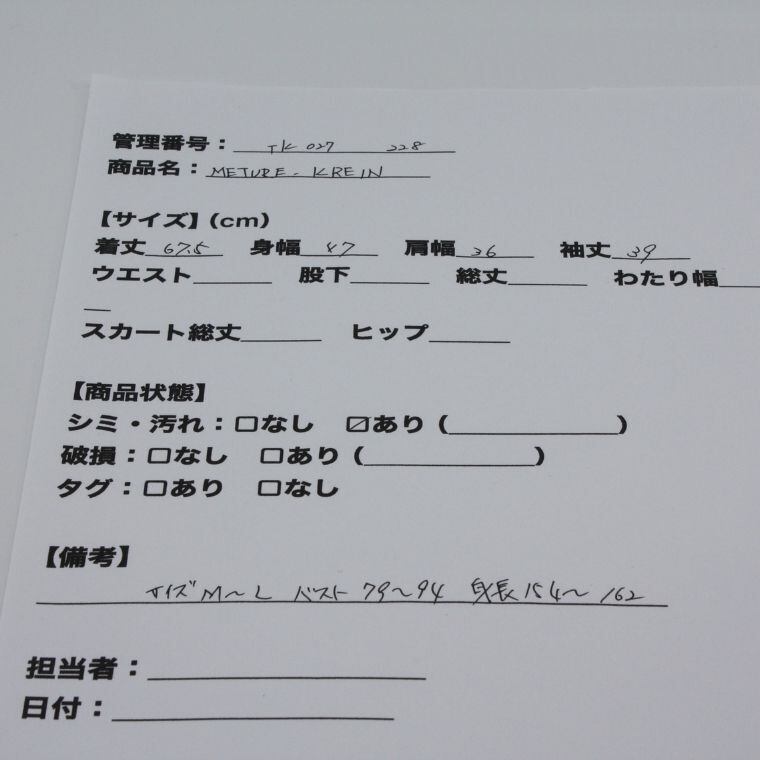 管理番号： TK 027 228
商品名： METURE - KREIN
【サイズ】(cm)
着丈 67.5 身幅 47 肩幅 36 袖丈 39
ウエスト 股下 総丈 わたり幅
スカート総丈 ヒップ
【商品状態】
シミ・汚れ：□なし ☑あり（ ）
破損：□なし □あり（ ）
タグ：□あり □なし
【備考】
サイズ M～L バスト 79～94 身長 154～162
担当者：
日付：